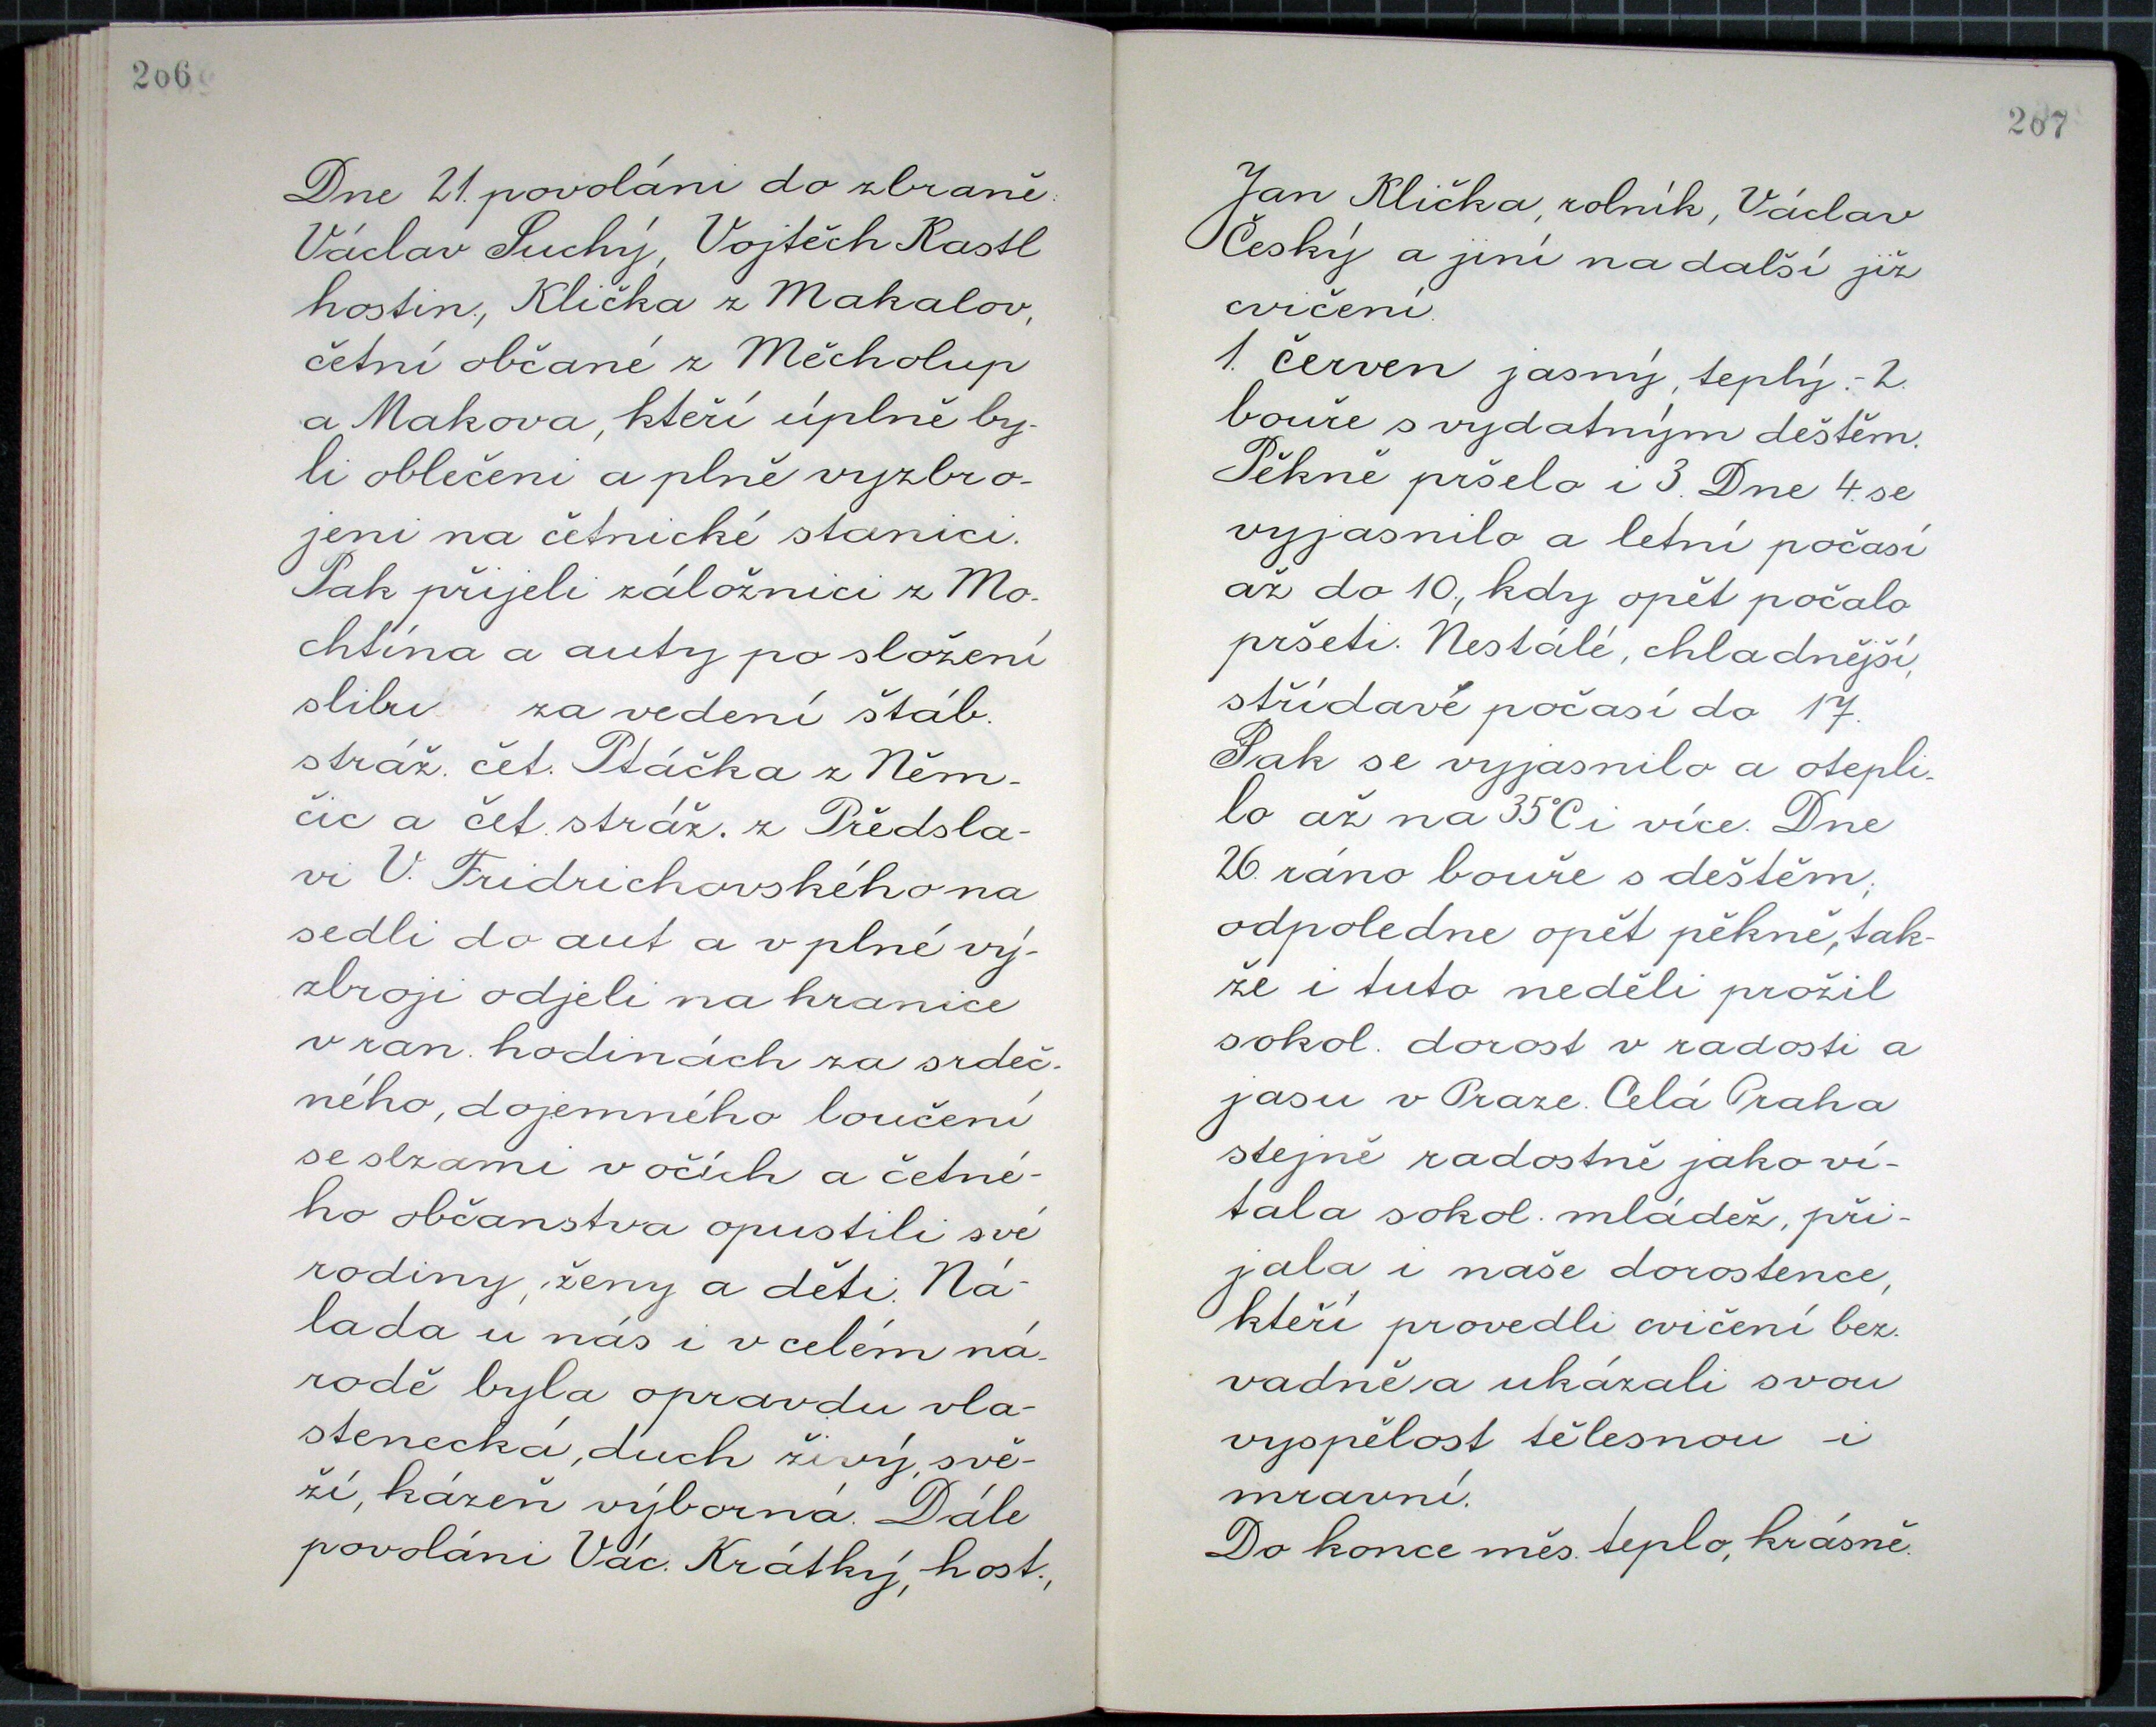 206
Dne 21. povoláni do zbraně:
Václav Suchý, Vojtěch Kastl
hostin., Klička z Makalov,
četní občané z Měcholup
a Makova, kteří úplně by-
li oblečeni a plně vyzbro-
jeni na četnické stanici.
Pak přijeli záložnici z Mo-
chtína a auty po složení
slibu za vedení štáb.
stráž. čet. Ptáčka z Něm-
čic a čet. stráž. z Předsla-
vi V. Fridrichovského na
sedli do aut a v plné vý-
zbroji odjeli na hranice
v ran. hodinách za srdeč-
ného, dojemného loučení
se slzami v očích a četné-
ho občanstva opustili své
rodiny, ženy a děti. Ná-
lada u nás i v celém ná-
rodě byla opravdu vla-
stenecká, duch živý, svě-
ží, kázeň výborná. Dále
povoláni Vác. Krátký, host.,
207
Jan Klička, rolník, Václav
Český a jiní na další již
cvičení.
1. červen jasný, teplý. - 2.
bouře s vydatným deštěm.
Pěkně pršelo i 3. Dne 4. se
vyjasnilo a letní počasí
až do 10., kdy opět počalo
pršeti. Nestálé, chladnější,
střídavé počasí do 17.
Pak se vyjasnilo a otepli-
lo až na 35°C i více. Dne
26. ráno bouře s deštěm;
odpoledne opět pěkně, tak-
že i tuto neděli prožil
sokol. dorost v radosti a
jasu v Praze. Celá Praha
stejně radostně jako ví-
tala sokol. mládež, při-
jala i naše dorostence,
kteří provedli cvičení bez-
vadně a ukázali svou
vyspělost tělesnou i
mravní.
Do konce měs. teplo, krásně.